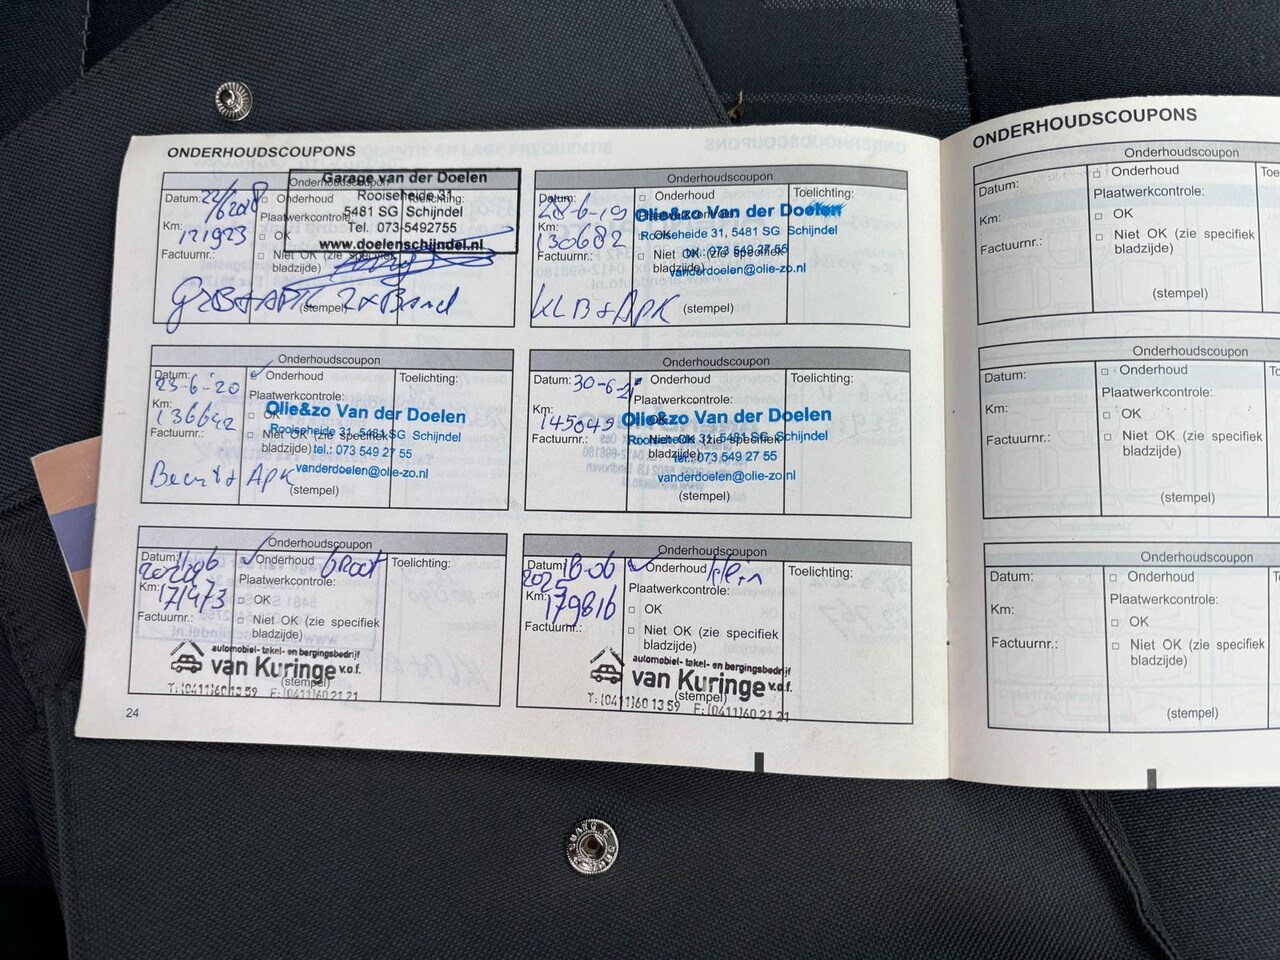 ONDERHOUDSCOUPONS
Onderhoudscoupon
Garage van der Doelen
Rooiseheide 31
5481 SG Schijndel
Tel. 073-5492755
www.doelenschijndel.nl
Datum: 22/6 2018
Onderhoud
Toelichting:
Plaatwerkcontrole:
Km: 121923
OK
Factuurnr.:
Niet OK (zie specifiek
bladzijde)
(stempel)
2x Band
Onderhoudscoupon
Datum: 28-6-19
Onderhoud
Toelichting:
Plaatwerkcontrole:
Olie&zo Van der Doelen
Km: 130682
OK
Rooiseheide 31, 5481 SG Schijndel
Factuurnr.:
Niet OK (zie specifiek
tel.: 073 549 27 55
bladzijde)
vanderdoelen@olie-zo.nl
KLB + APK
(stempel)
Onderhoudscoupon
Datum: 23-6-'20
Onderhoud
Toelichting:
Plaatwerkcontrole:
Km: 136642
OK
Olie&zo Van der Doelen
Factuurnr.:
Niet OK (zie specifiek
Rooiseheide 31, 5481 SG Schijndel
bladzijde)
tel.: 073 549 27 55
vanderdoelen@olie-zo.nl
+ APK
(stempel)
Onderhoudscoupon
Datum: 30-6-21
Onderhoud
Toelichting:
Plaatwerkcontrole:
Km: 145049
OK
Olie&zo Van der Doelen
Factuurnr.:
Niet OK (zie specifiek
Rooiseheide 31, 5481 SG Schijndel
bladzijde)
tel.: 073 549 27 55
vanderdoelen@olie-zo.nl
(stempel)
Onderhoudscoupon
Datum:
Onderhoud Groot
Toelichting:
Plaatwerkcontrole:
Km: 171473
OK
Factuurnr.:
Niet OK (zie specifiek
bladzijde)
automobiel- takel- en bergingsbedrijf
van Kuringe v.o.f.
(stempel)
T: (0411)60 13 59 F: (0411)60 21 21
Onderhoudscoupon
Datum: 18-06
Onderhoud klein
Toelichting:
Plaatwerkcontrole:
Km: 179816
OK
Factuurnr.:
Niet OK (zie specifiek
bladzijde)
automobiel- takel- en bergingsbedrijf
van Kuringe v.o.f.
(stempel)
T: (0411)60 13 59 F: (0411)60 21 21
24
ONDERHOUDSCOUPONS
Onderhoudscoupon
Datum:
Onderhoud
Plaatwerkcontrole:
Km:
OK
Factuurnr.:
Niet OK (zie specifiek
bladzijde)
(stempel)
Onderhoudscoupon
Datum:
Onderhoud
Plaatwerkcontrole:
Km:
OK
Factuurnr.:
Niet OK (zie specifiek
bladzijde)
(stempel)
Onderhoudscoupon
Datum:
Onderhoud
Plaatwerkcontrole:
Km:
OK
Factuurnr.:
Niet OK (zie specifiek
bladzijde)
(stempel)